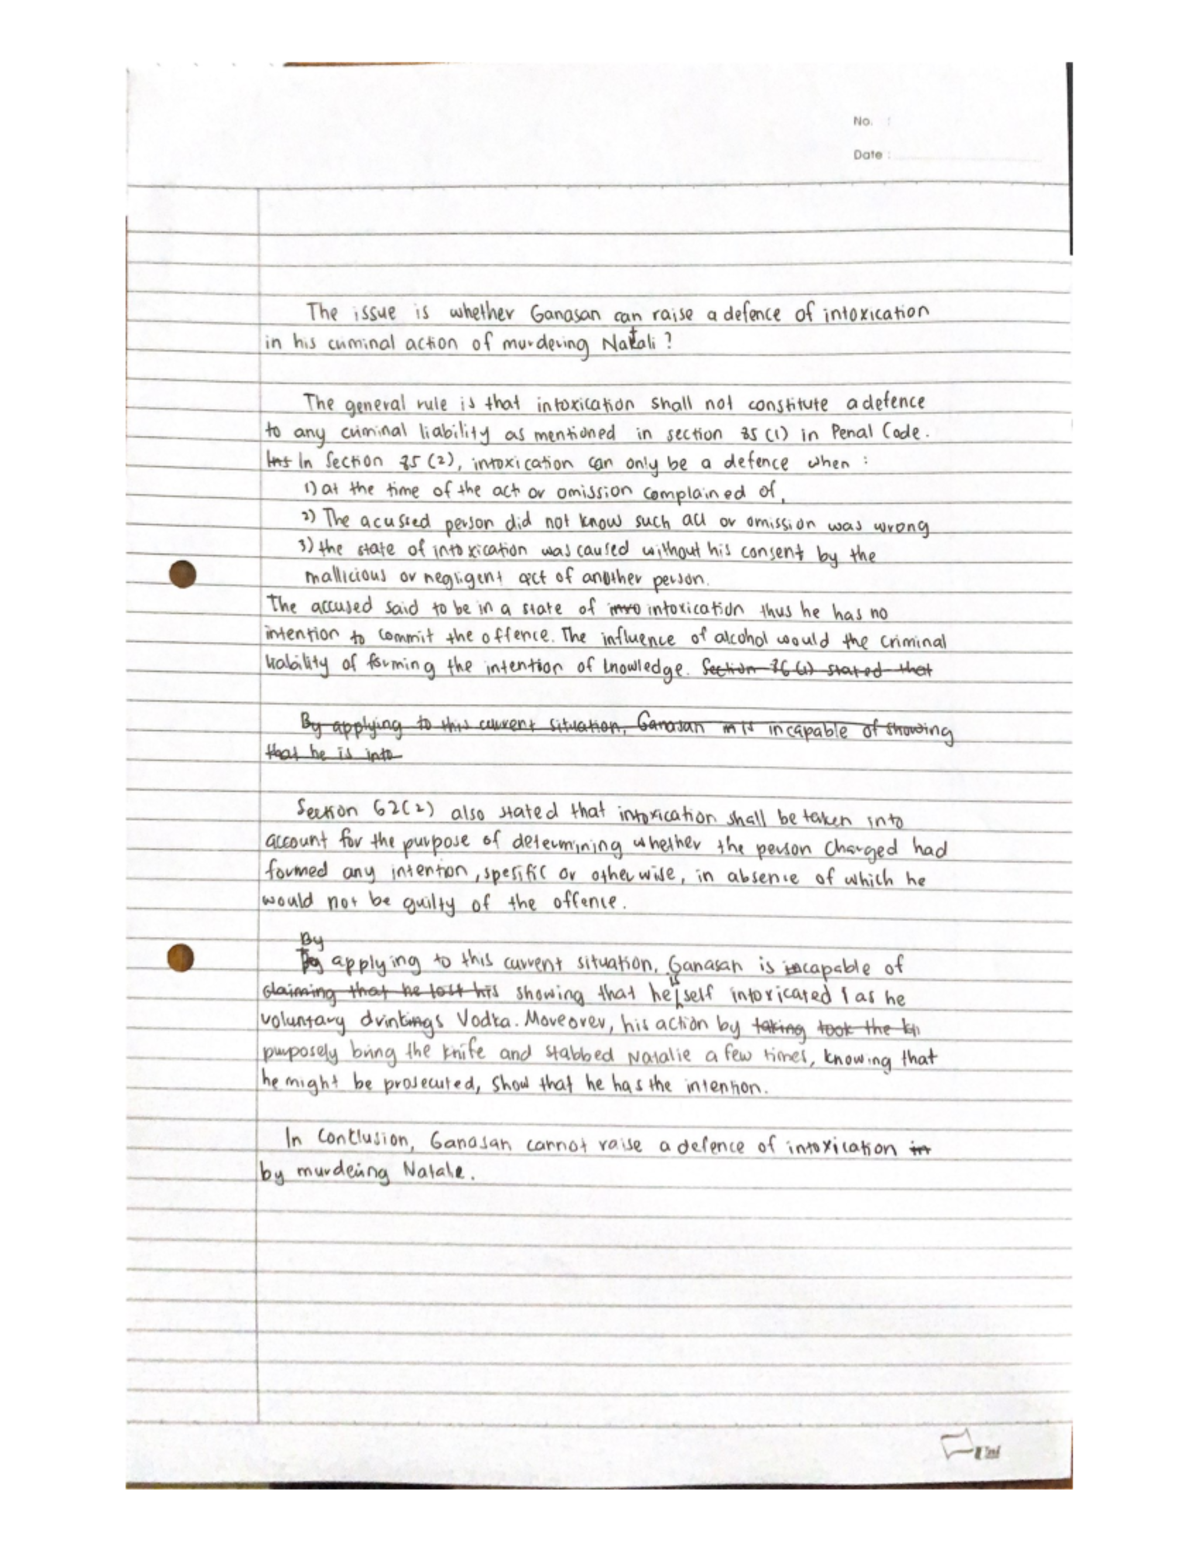 No. :
Date :
The issue is whether Ganasan can raise a defence of intoxication
in his criminal action of murdering Natali ?
The general rule is that intoxication shall not constitute a defence
to any criminal liability as mentioned in section 85 (1) in Penal Code.
Int In Section 85 (2), intoxication can only be a defence when :
1) at the time of the act or omission complained of,
2) The acussed person did not know such act or omission was wrong
3) the state of intoxication was caused without his consent by the
mallicious or negligent act of another person.
The accused said to be in a state of intro intoxication thus he has no
intention to commit the offence. The influence of alcohol would the criminal
liability of forming the intention of knowledge. Section 86 (1) stated that
By applying to this current situation, Ganasan is incapable of showing
that he is into
Section 62(2) also stated that intoxication shall be taken into
account for the purpose of determining whether the person charged had
formed any intention, spesific or otherwise, in absense of which he
would not be guilty of the offence.
By
By applying to this current situation, Ganasan is incapable of
claiming that he lost his showing that he is self intoxicated as he
voluntary drinkings Vodka. Moreover, his action by taking took the
purposely bring the knife and stabbed Natalie a few times, knowing that
he might be prosecuted, show that he has the intention.
In Conclusion, Ganasan cannot raise a defence of intoxication in
by murdering Natalie.